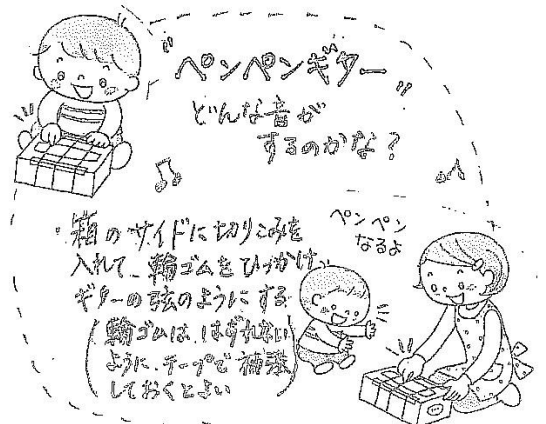 "ペンペンギター"
どんな音が
するのかな?
・箱のサイドに切りこみを
入れて、輪ゴムをひっかけ、
ギターの弦のようにする
(輪ゴムは、はずれない
ように、テープで補強
しておくとよい)
ペンペン
なるよ